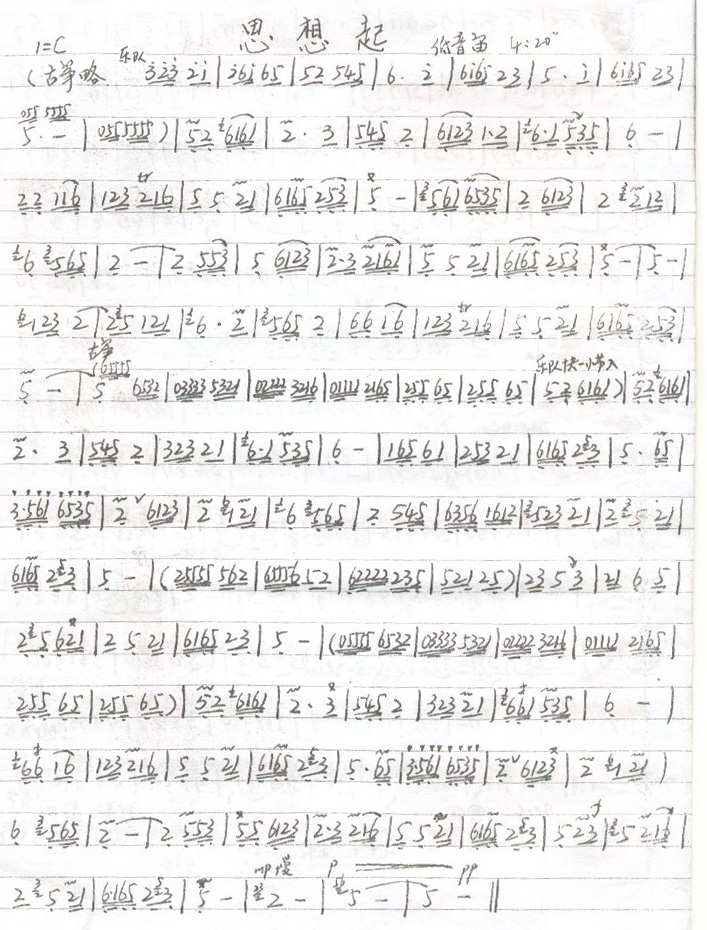 思想起 低音笛 4:20"
1=C 乐队
(古筝略 323 21 | 261 65 | 52 545 | 6· 2 | 6165 23 | 5· 1 | 6165 23 |
055 5555
5· - | 0555555 ) | 52 6161 | 2· 3 | 545 2 | 6123 1·2 | 6·1 535 | 6 - |
tr
22 116 | 123 216 | 5 5 21 | 6165 253 | 5 - | 561 6535 | 2 6123 | 2 212 |
6 565 | 2 - | 2 553 | 5 6123 | 2·3 2161 | 5 5 21 | 6165 253 | 5 - | 5 - |
123 2 | 25 121 | 6· 2 | 565 2 | 66 16 | 123 216 | 5 5 21 | 6165 253 |
古筝 乐队快一小节入
5 - | 5 6532 | 03333 5321 | 02222 3216 | 01111 2165 | 255 65 | 255 65 | 52 6161 ) | 52 6161 |
2· 3 | 545 2 | 323 21 | 6·1 535 | 6 - | 165 61 | 253 21 | 6165 253 | 5· 65 |
3·561 6535 | 2 6123 | 2 21 | 6 565 | 2 545 | 6356 1612 | 523 21 | 2 5 21 |
6165 253 | 5 - | (25555 562 | 65556 52 | 62222 235 | 521 25 ) | 23 5 3 | 21 6 5 |
2 5 621 | 2 5 21 | 6165 23 | 5 - | (05555 6532 | 03333 5321 | 02222 3216 | 01111 2165 |
255 65 | 255 65 ) | 52 6161 | 2· 3 | 545 2 | 323 21 | 661 535 | 6 - |
66 16 | 123 216 | 5 5 21 | 6165 253 | 5· 65 | 3561 6535 | 2 6123 | 2 21 )
6 565 | 2 - | 2 553 | 55 6123 | 2·3 216 | 5 5 21 | 6165 253 | 5 23 | 5 216 |
mp 慢 p pp
2 5 21 | 6·165 253 | 5 - | 2 - | 5 - | 5 - ||